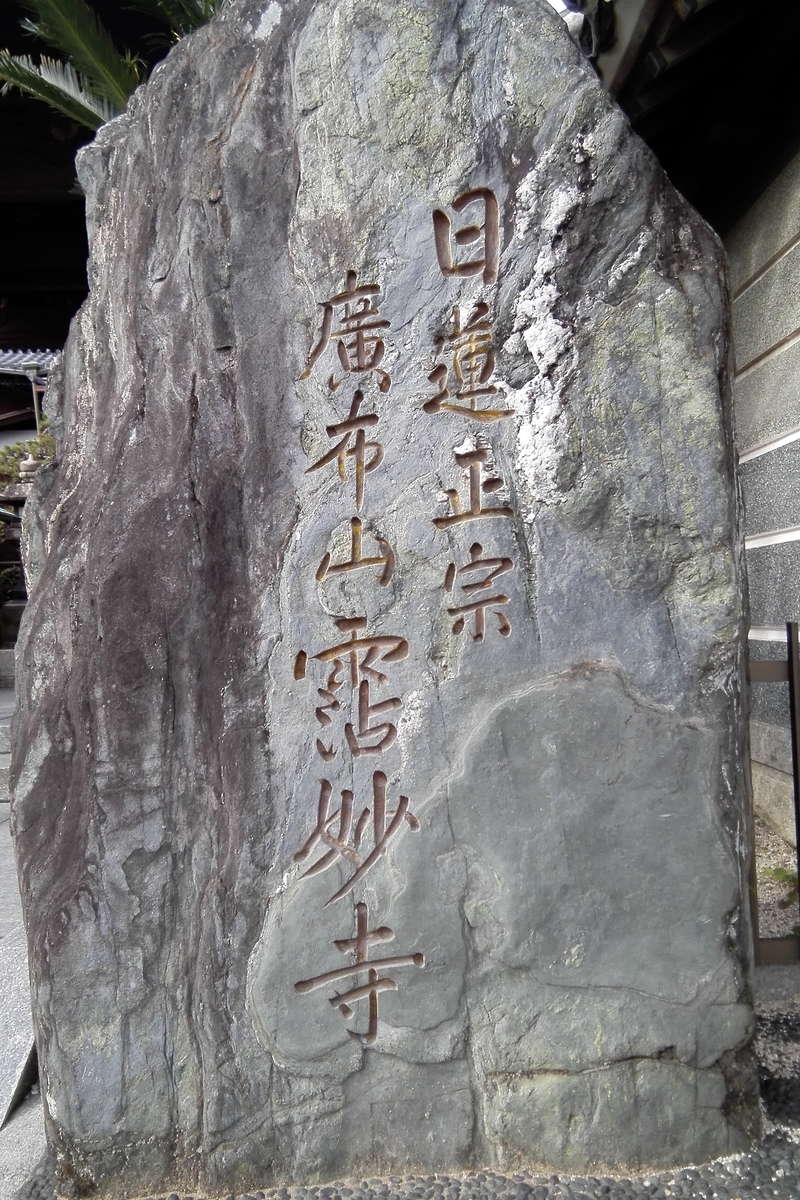 日蓮正宗
廣布山霑妙寺